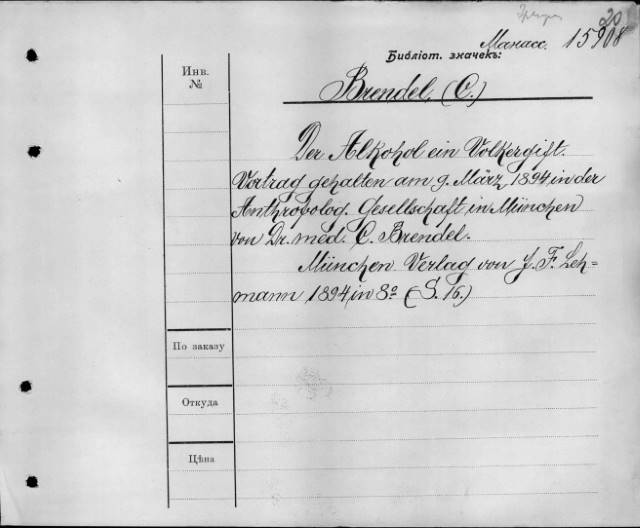 20
Манасс. 15908
Библіот. значекъ:
Инв.
№
Brendel, (C.)
Der Alkohol ein Volkergift.
Vortrag gehalten am 9. März 1894 in der
Anthropolog. Gesellschaft in München
von Dr. med. C. Brendel.
München Verlag von J. F. Leh=
mann 1894, in 8º (S. 16.)
По заказу
Откуда
Цѣна